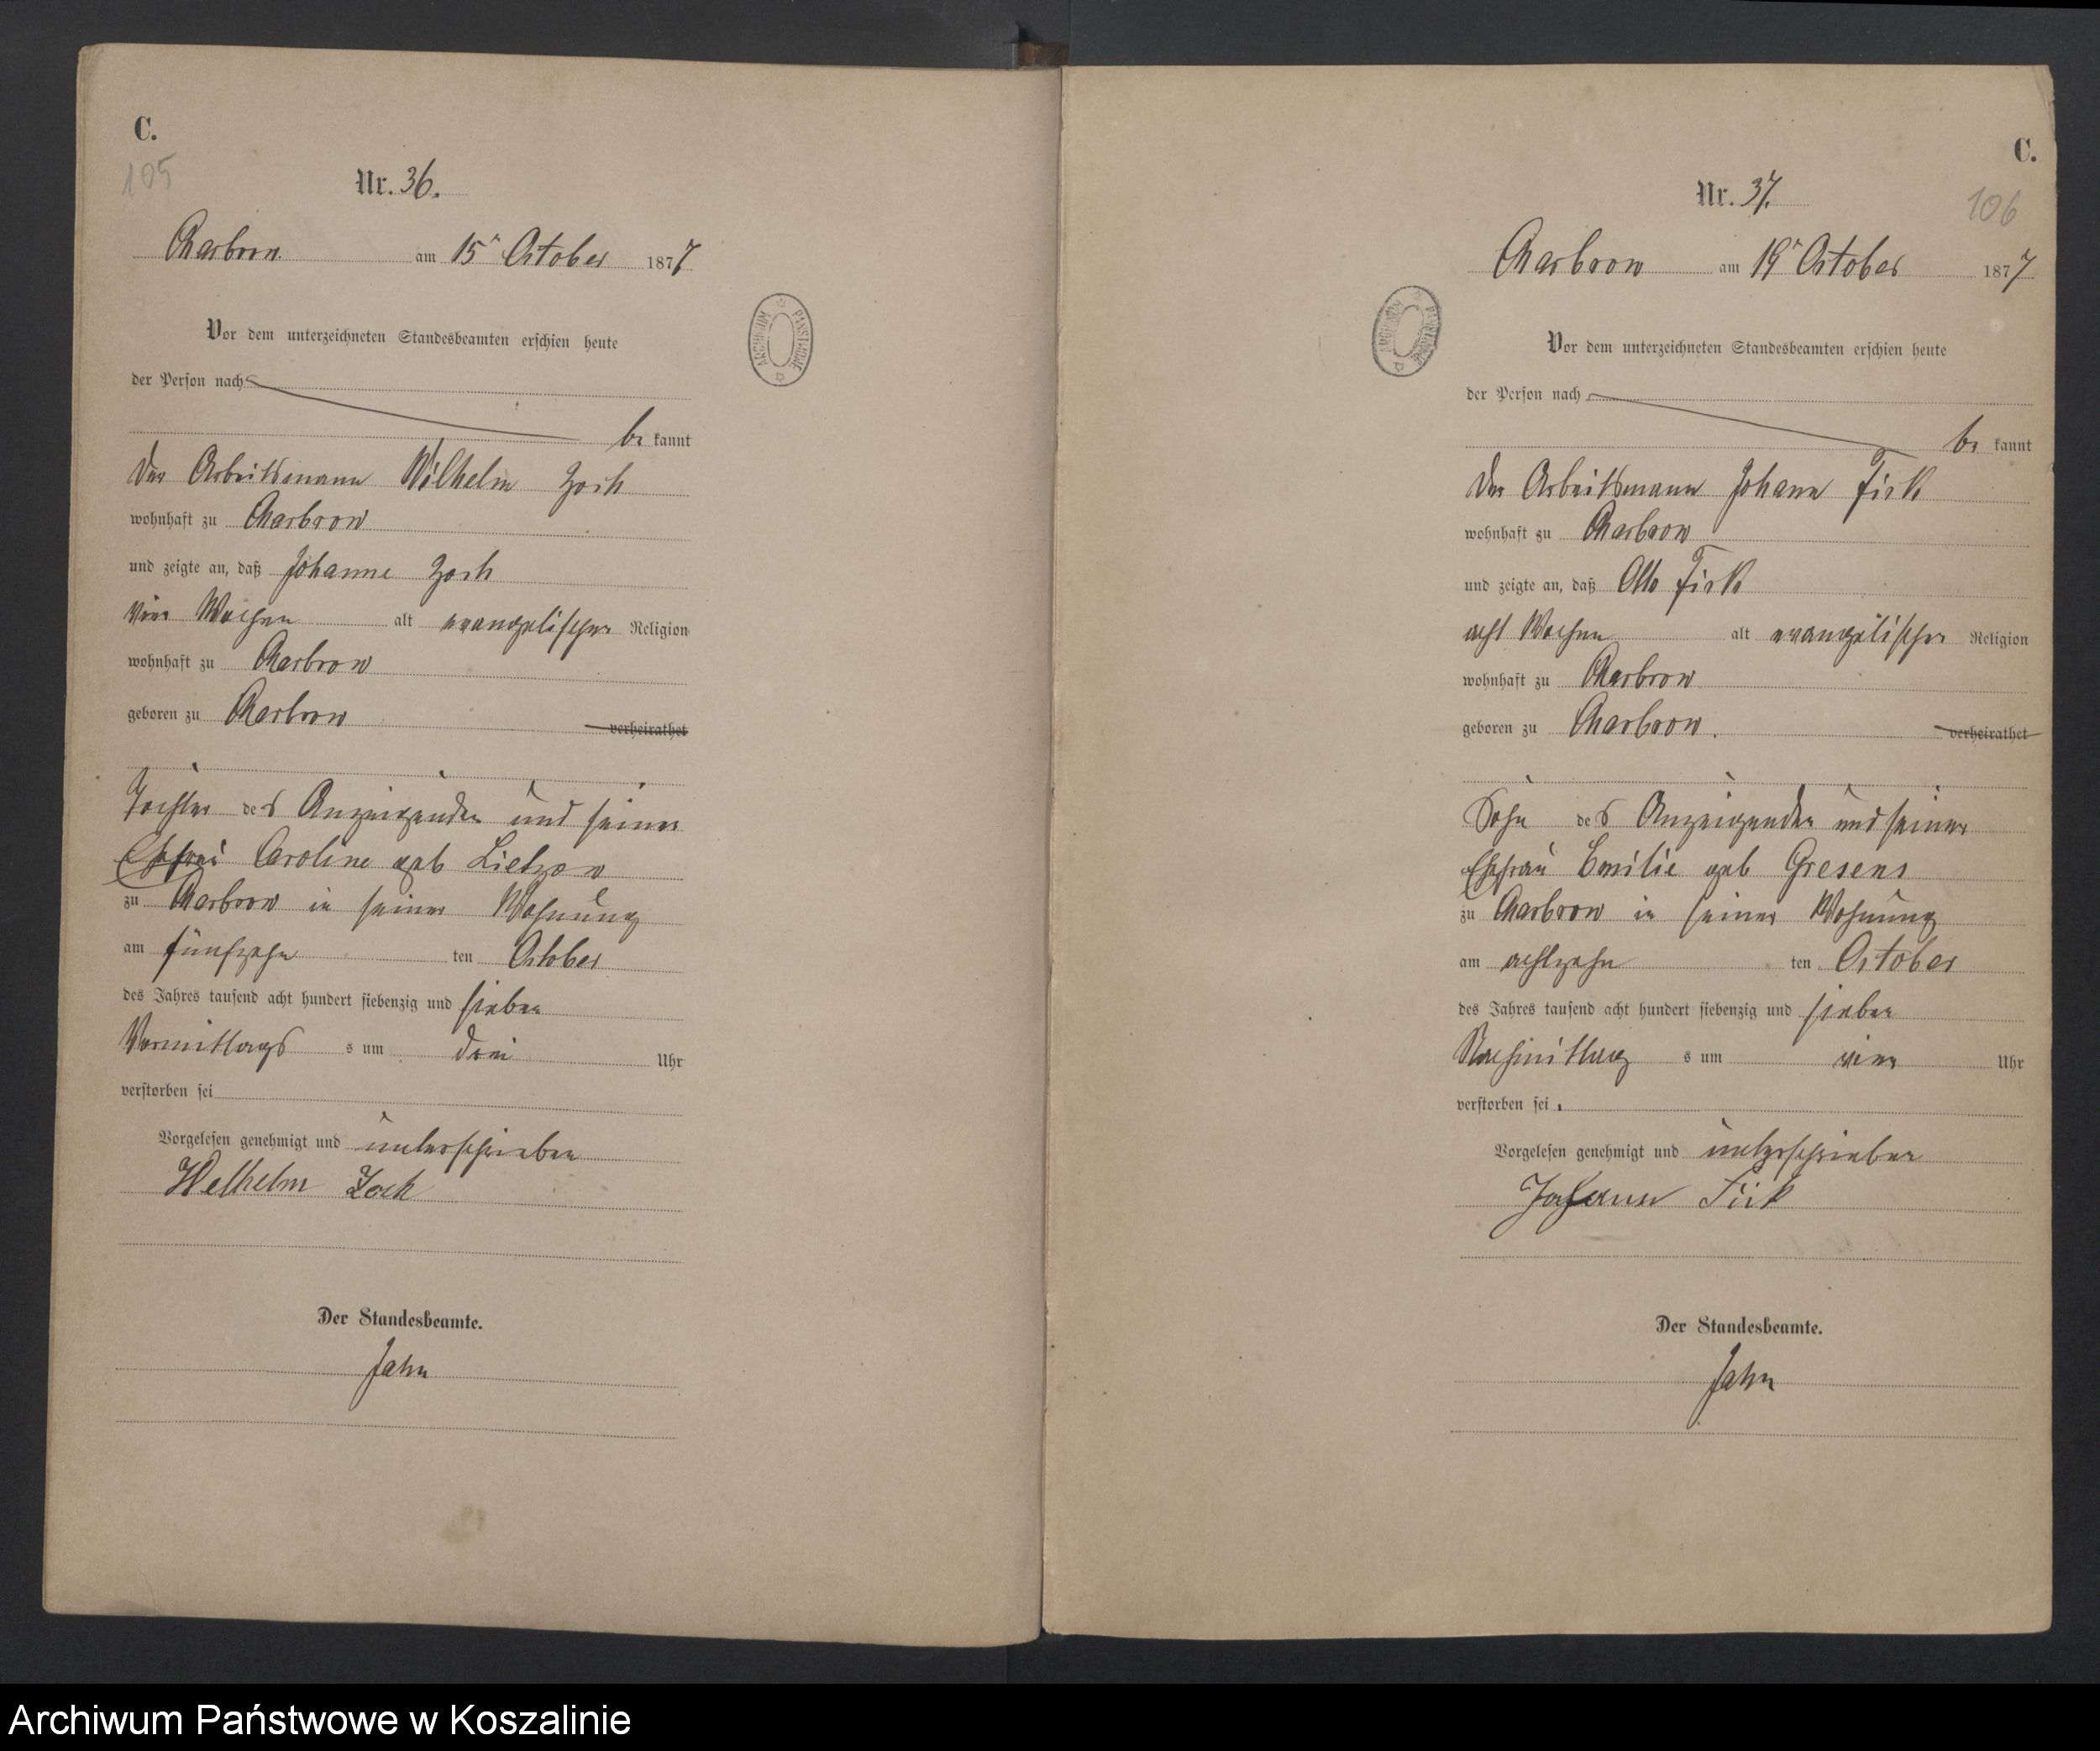 C.
105
Nr. 36.
Charbrow am 15ᵗ October 1877
Vor dem unterzeichneten Standesbeamten erschien heute
der Person nach
be kannt
der Arbeitsmann Wilhelm Zoch
wohnhaft zu Charbrow
und zeigte an, daß Johanne Zoch
vier Wochen alt evangelischer Religion
wohnhaft zu Charbrow
geboren zu Charbrow verheirathet
Tochter des Anzeigenden und seiner
Ehefrau Caroline geb Lietzow
zu Charbrow in seiner Wohnung
am fünfzehn ten October
des Jahres tausend acht hundert siebenzig und sieben
Vormittags s um drei Uhr
verstorben sei
Vorgelesen genehmigt und unterschrieben
Wilhelm Zock
Der Standesbeamte.
Jahn
ARCHIWUM PAŃSTWOWE
C.
106
Nr. 37.
Charbrow am 19ᵗ October 1877
Vor dem unterzeichneten Standesbeamten erschien heute
der Person nach
be kannt
der Arbeitsmann Johann Fick
wohnhaft zu Charbrow
und zeigte an, daß Otto Fick
acht Wochen alt evangelischer Religion
wohnhaft zu Charbrow
geboren zu Charbrow. verheirathet
Sohn des Anzeigenden und seiner
Ehefrau Emilie geb Gresens
zu Charbrow in seiner Wohnung
am achtzehn ten October
des Jahres tausend acht hundert siebenzig und sieben
Nachmittag s um vier Uhr
verstorben sei.
Vorgelesen genehmigt und unterschrieben
Johann Fick
Der Standesbeamte.
Jahn
ARCHIWUM PAŃSTWOWE
Archiwum Państwowe w Koszalinie